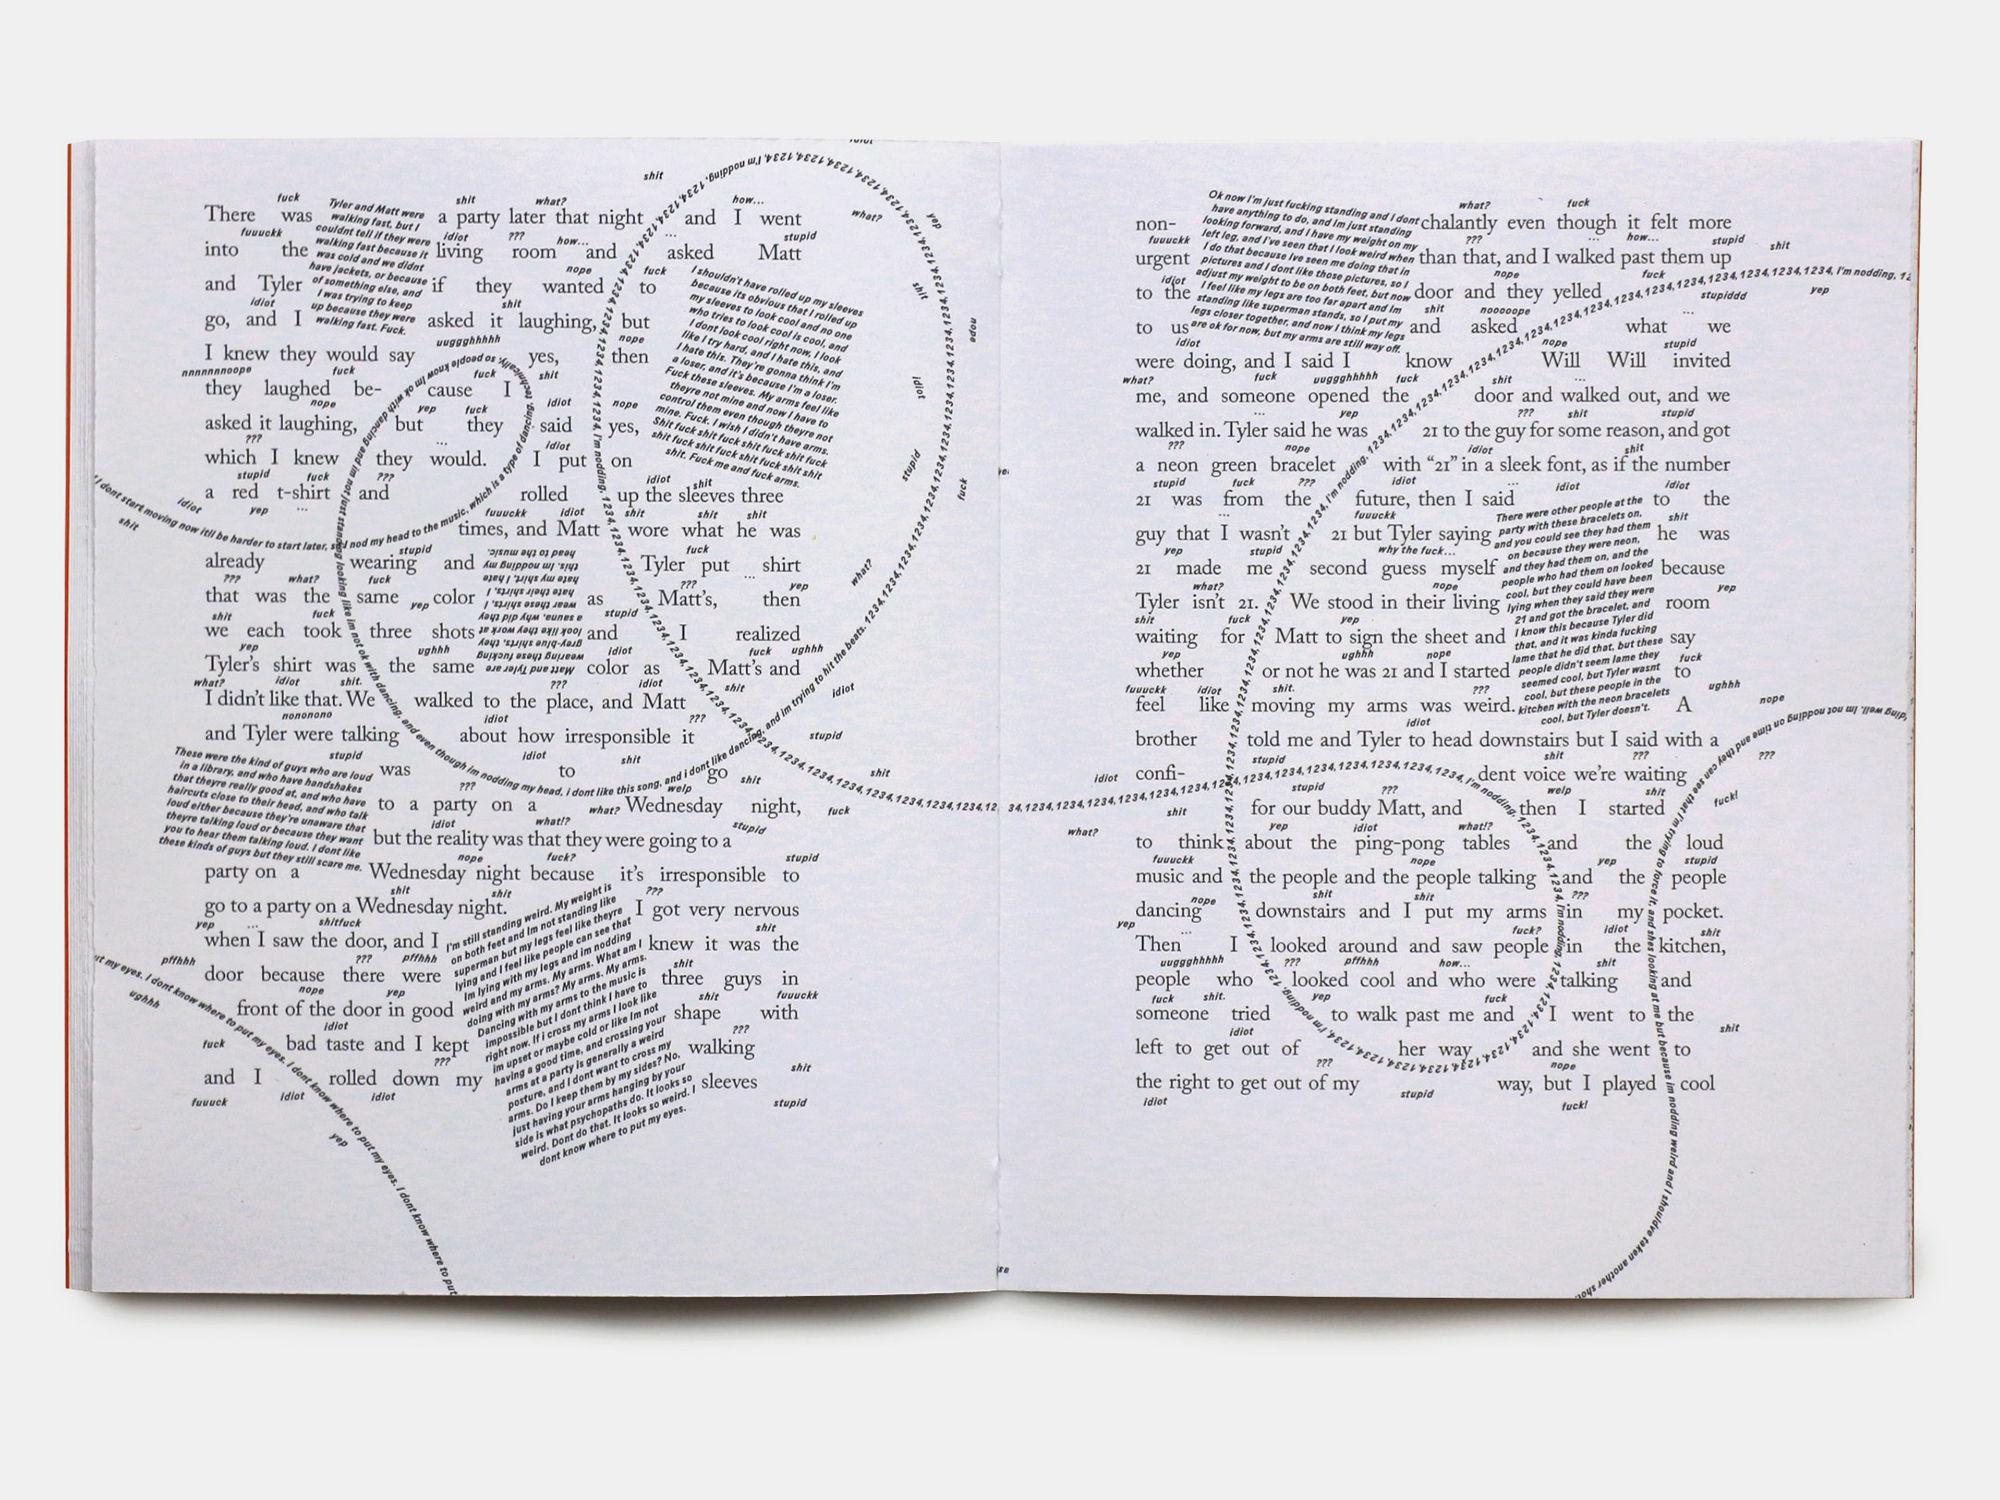 fuck shit what? how...
There was a party later that night and I went
fuuuckk idiot ??? how... stupid
into the living room and asked Matt
nope fuck
and Tyler if they wanted to
idiot shit
go, and I asked it laughing, but
uuggghhhhh nope
I knew they would say yes, then
nnnnnnnoope fuck fuck shit
they laughed be- cause I
nope yep fuck idiot nope
asked it laughing, but they said yes,
??? ... idiot
which I knew they would. I put on
stupid fuck ??? idiot shit
a red t-shirt and rolled up the sleeves three
idiot yep ... fuuuckk idiot shit shit shit
times, and Matt wore what he was
stupid fuck
already wearing and Tyler put shirt
??? what? fuck ??? ... yep
that was the same color as Matt's, then
shit fuck yep stupid
we each took three shots and I realized
yep ughhh idiot fuck ughhh
Tyler's shirt was the same color as Matt's and
what? idiot shit. ??? idiot shit
I didn't like that. We walked to the place, and Matt
nononono idiot ???
and Tyler were talking about how irresponsible it
stupid idiot shit stupid
was to go
??? what? welp shit shit
to a party on a Wednesday night,
idiot what!? stupid fuck
but the reality was that they were going to a
nope fuck? stupid
party on a Wednesday night because it's irresponsible to
shit shit ???
go to a party on a Wednesday night. I got very nervous
yep shitfuck shit
when I saw the door, and I knew it was the
pffhhh ??? pffhhh shit
door because there were three guys in
ughhh nope yep shit fuuuckk
front of the door in good shape with
fuck idiot ???
bad taste and I kept walking
??? shit
and I rolled down my sleeves
fuuuck idiot idiot stupid
yep
Tyler and Matt were
walking fast, but I
couldnt tell if they were
walking fast because it
was cold and we didnt
have jackets, or because
of something else, and
I was trying to keep
up because they were
walking fast. Fuck.
I shouldn't have rolled up my sleeves
because its obvious that I rolled up
my sleeves to look cool and no one
who tries to look cool is cool, and
I dont look cool right now, I look
like I try hard, and I hate this, and
I hate this. They're gonna think I'm
a loser, and it's because I'm a loser.
Fuck these sleeves. My arms feel like
theyre not mine and now I have to
control them even though theyre not
mine. Fuck. I wish I didn't have arms.
Shit fuck shit fuck shit fuck shit fuck
shit fuck shit fuck shit fuck shit shit
shit. Fuck me and fuck arms.
Matt and Tyler are
wearing these fucking
grey-blue shirts, they
look like they work at
a sauna, why did they
wear these shirts, I
hate their shirts, I
hate my shirt, I hate
this. Im nodding my
head to the music.
These were the kind of guys who are loud
in a library, and who have handshakes
that theyre really good at, and who have
haircuts close to their head, and who talk
loud either because they're unaware that
theyre talking loud or because they want
you to hear them talking loud. I dont like
these kinds of guys but they still scare me.
I'm still standing weird. My weight is
on both feet and Im not standing like
superman but my legs feel like theyre
lying and I feel like people can see that
Im lying with my legs and im nodding
weird and my arms. My arms. What am I
doing with my arms? My arms. My arms.
Dancing with my arms to the music is
impossible but I dont think I have to
right now. If i cross my arms I look like
im upset or maybe cold or like Im not
having a good time, and crossing your
arms at a party is generally a weird
posture, and I dont want to cross my
arms. Do I keep them by my sides? No,
just having your arms hanging by your
side is what psychopaths do. It looks so
weird. Dont do that. It looks so weird. I
dont know where to put my eyes.
I dont start moving now itll be harder to start later, so I nod my head to the music, which is a type of dancing, technically, so people know im ok with dancing and im not just standing looking like im not ok with dancing, and even though im nodding my head, i dont like this song, and i dont like dancing, and im trying to hit the beats. 1234, 1234, 1234, 1234, 1234, 1234, 1234, 1234, 1234, I'm nodding, 1234, 1234, 1234, 1234, 1234, 1234, I'm nodding, 1234, 1234, 1234, 1234, 1234, 1234, 1234, 1234, 1234, 1234, 1234, 1234
put my eyes. I dont know where to put my eyes. I dont know where to put my eyes. I dont know where to put my eyes. I dont know where to put
what? fuck
non- chalantly even though it felt more
fuuuckk ??? ... how... stupid shit
urgent than that, and I walked past them up
idiot nope fuck
to the door and they yelled
shit noooope stupiddd yep
to us and asked what we
idiot nope ... stupid
were doing, and I said I know Will Will invited
what? fuck uuggghhhhh fuck shit ...
me, and someone opened the door and walked out, and we
... yep ??? shit stupid
walked in. Tyler said he was 21 to the guy for some reason, and got
??? nope idiot shit
a neon green bracelet with “21” in a sleek font, as if the number
stupid fuck ??? idiot ... idiot idiot
21 was from the future, then I said to the
... fuuuckk shit
guy that I wasn't 21 but Tyler saying he was
yep stupid why the fuck...
21 made me second guess myself because
what? nope yep
Tyler isn't 21. We stood in their living room
shit fuck yep
waiting for Matt to sign the sheet and say
yep ughhh nope fuck
whether or not he was 21 and I started to
fuuuckk idiot shit. ??? ughhh
feel like moving my arms was weird. A
idiot nope
brother told me and Tyler to head downstairs but I said with a
idiot stupid shit ??? ???
confi- dent voice we're waiting
shit ??? welp shit fuck!
for our buddy Matt, and then I started
what? yep idiot what!?
to think about the ping-pong tables and the loud
fuuuckk nope yep stupid
music and the people and the people talking and the people
nope shit shit ???
dancing downstairs and I put my arms in my pocket.
yep ... fuck? idiot shit
Then I looked around and saw people in the kitchen,
uuggghhhhh ??? pffhhh how... shit
people who looked cool and who were talking and
fuck shit. yep fuck
someone tried to walk past me and I went to the
idiot shit
left to get out of her way and she went to
??? nope
the right to get out of my way, but I played cool
idiot stupid fuck!
Ok now I'm just fucking standing and I dont
have anything to do, and Im just standing
looking forward, and I have my weight on my
left leg, and I've seen that I look weird when
I do that because Ive seen me doing that in
pictures and I dont like those pictures, so I
adjust my weight to be on both feet, but now
I feel like my legs are too far apart and Im
standing like superman stands, so I put my
legs closer together, and now I think my legs
are ok for now, but my arms are still way off.
There were other people at the
party with these bracelets on,
and you could see they had them
on because they were neon,
and they had them on, and the
people who had them on looked
cool, but they could have been
lying when they said they were
21 and got the bracelet, and
I know this because Tyler did
that, and it was kinda fucking
lame that he did that, but these
people didn't seem lame they
seemed cool, but Tyler wasnt
cool, but these people in the
kitchen with the neon bracelets
cool, but Tyler doesn't.
34, 1234, 1234, 1234, 1234, 1234, 1234, 1234, 1234, 1234, 1234, 1234, I'm nodding, 1234, 1234, 1234, I'm nodding, 1234, 1234, 1234, 1234, 1234, I'm nodding, 1234, 1234, 1234, 1234, 1234, 1234, I'm nodding, 1234, 1234, 1234, 1234, 1234, 1234, 1234, I'm nodding, 12
well, Im not nodding on time and they can see that I'm trying to force it, and shes looking at me but because im nodding weird and I shouldve taken another shot